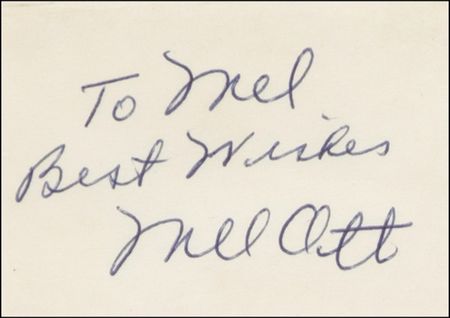 To Mel
Best Wishes
Mel Ott